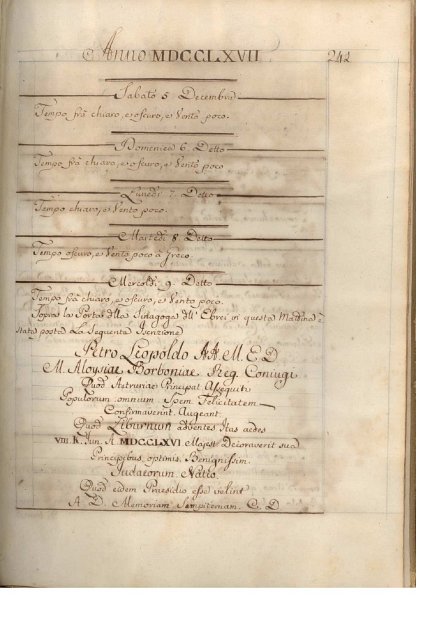 Anno MDCCLXVII 242
Sabato 5 Decembre
Tempo frà chiaro, e oscuro, e Vento poco.
Domenica 6. Detto
Tempo frà chiaro, e oscuro, e Vento poco
Lunedì 7. Detto
Tempo chiaro, e Vento poco.
Martedì 8. Detto
Tempo oscuro, e Vento poco à Greco.
Mercoldì 9. Detto
Tempo frà chiaro, e oscuro, e Vento poco.
Sopra la Porta della Sinagoga dell' Ebrei in questa Mattina è
stata posta La Seguente Iscrizione
Petro Leopoldo A A M. E D
M. Aloysiae Borboniae Reg. Coniugi
Quod Aetruriae Principat. Assequuti
Populorum omnium Spem Felicitatem
Confirmaverint Augeant.
Quod Liburnum adventes Has aedes
VIII K. Jun. A. MDCCLXVI Majest. Decoraverit sua
Principibus optimis Benignissim.
Judaeorum Natio.
Quod eidem Praesidio esse velint
A. D. Memoriam Sempiternam. C. D